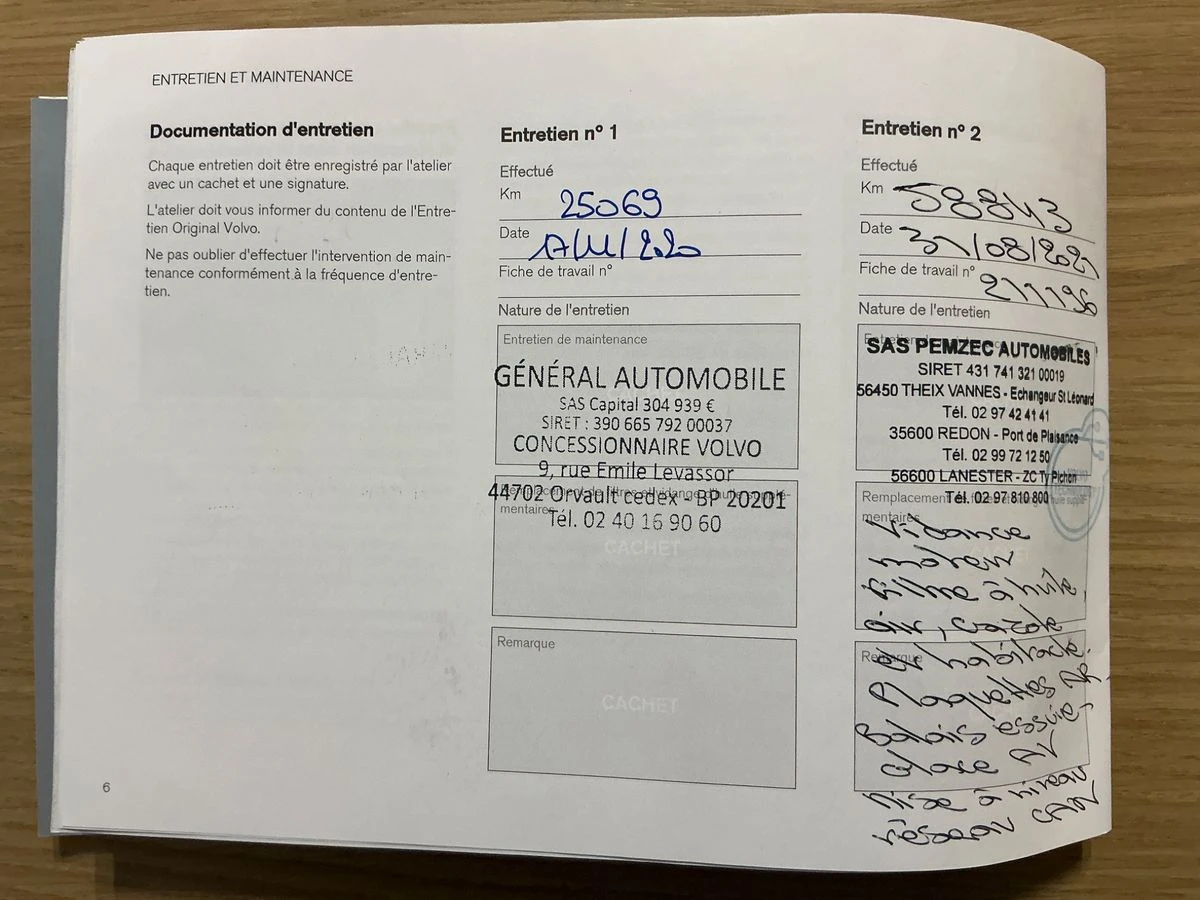 ENTRETIEN ET MAINTENANCE
Documentation d'entretien
Chaque entretien doit être enregistré par l'atelier
avec un cachet et une signature.
L'atelier doit vous informer du contenu de l'Entre-
tien Original Volvo.
Ne pas oublier d'effectuer l'intervention de main-
tenance conformément à la fréquence d'entre-
tien.
6
Entretien nº 1
Effectué
Km 25069
Date 17/11/2020
Fiche de travail nº
Nature de l'entretien
Entretien de maintenance
GÉNÉRAL AUTOMOBILE
SAS Capital 304 939 €
SIRET : 390 665 792 00037
CONCESSIONNAIRE VOLVO
9, rue Emile Levassor
44702 Orvault cedex - BP 20201
Tél. 02 40 16 90 60
mentaires
CACHET
Remarque
CACHET
Entretien nº 2
Effectué
Km 58843
Date 31/08/2021
Fiche de travail nº 211196
Nature de l'entretien
SAS PEMZEC AUTOMOBILES
SIRET 431 741 321 00019
56450 THEIX VANNES - Echangeur St Léonard
Tél. 02 97 42 41 41
35600 REDON - Port de Plaisance
Tél. 02 99 72 12 50
56600 LANESTER - ZC Ty Pichen
Tél. 02 97 810 800
Remplacement
mentaires
Vidange
moteur
Filtre à huile,
air,
Remarque
Plaquettes AR.
Balais essuie,
glace AV
Mise à niveau